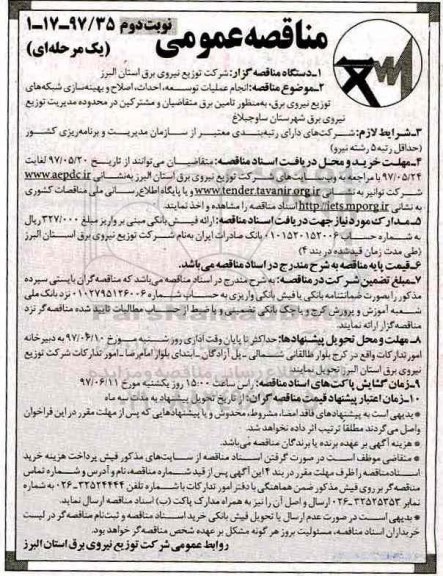 مناقصه عمومی
نوبت دوم ۹۷/۳۵-۱۷-۱
(یک مرحله‌ای)
۱-دستگاه مناقصه گزار: شرکت توزیع نیروی برق استان البرز
۲-موضوع مناقصه: انجام عملیات توسعه، احداث، اصلاح و بهینه‌سازی شبکه‌های
توزیع نیروی برق، به‌منظور تامین برق متقاضیان و مشترکین در محدوده مدیریت توزیع
نیروی برق شهرستان ساوجبلاغ
۳-شرایط لازم: شرکت‌های دارای رتبه‌بندی معتبر از سازمان مدیریت و برنامه‌ریزی کشور
(حداقل رتبه ۵ رشته نیرو)
۴-مهلت خرید و محل دریافت اسناد مناقصه: متقاضیان می‌توانند از تاریخ ۹۷/۰۵/۲۰ لغایت
۹۷/۰۵/۲۴ با مراجعه به وب‌سایت‌های شرکت توزیع نیروی برق استان البرز به‌نشانی www.aepdc.ir
شرکت توانیر به نشانی www.tender.tavanir.org.ir و یا پایگاه اطلاع رسانی ملی مناقصات کشوری
به نشانی http://iets.mporg.ir اسناد مناقصه را مشاهده و اخذ نمایند.
۵-مدارک مورد نیاز جهت دریافت اسناد مناقصه: ارائه فیش بانکی مبنی بر واریز مبلغ ۳۲۷/۰۰۰ ریال
به شماره حساب ۰۱۰۱۵۲۰۱۵۲۰۰۶ بانک صادرات ایران به‌نام شرکت توزیع نیروی برق استان البرز
(طی مدت زمان قیدشده در بند ۴)
۶-قیمت پایه مناقصه به شرح مندرج در اسناد مناقصه می‌باشد.
۷-مبلغ تضمین شرکت در مناقصه: به شرح مندرج در اسناد مناقصه می‌باشد که مناقصه‌گران بایستی سپرده
مذکور را بصورت ضمانتنامه بانکی یا فیش بانکی واریزی به حساب شماره ۰۱۰۲۷۹۵۱۲۶۰۰۶ نزد بانک ملی
شعبه آموزش و پرورش کرج و یا چک بانکی تضمینی و یا ضبط از حساب مطالبات تایید شده مناقصه‌گر نزد
مناقصه‌گزار ارائه نمایند.
۸-مهلت و محل تحویل پیشنهادها: حداکثر تا پایان وقت اداری روز شنبه مورخ ۹۷/۰۶/۱۰ به دبیرخانه
امور تدارکات واقع در کرج بلوار طالقانی شمالی-پل آزادگان-ابتدای بلوار امام رضا-امور تدارکات شرکت توزیع
نیروی برق استان البرز تحویل نمایند.
۹-زمان گشایش پاکت‌های اسناد مناقصه: راس ساعت ۱۵:۰۰ روز یکشنبه مورخ ۹۷/۰۶/۱۱
۱۰-زمان اعتبار پیشنهاد قیمت مناقصه گران: از تاریخ تحویل پیشنهاد به مدت سه ماه
* بدیهی است به پیشنهادهای فاقد امضا، مشروط، مخدوش و یا پیشنهادهایی که پس از مهلت مقرر در این فراخوان
واصل می‌گردند مطلقا ترتیب اثر داده نخواهد شد.
* هزینه آگهی بر عهده برنده یا برندگان مناقصه می‌باشد.
* متقاضی موظف است در صورت گرفتن اسناد مناقصه از سایت‌های مذکور فیش پرداخت هزینه خرید
اسناد مناقصه را ظرف مهلت مقرر در بند ۴ این آگهی پس از قید شماره مناقصه، نام و آدرس و شماره تماس
مناقصه گر بر روی فیش مذکور ضمن هماهنگی با دفتر امور تدارکات با شماره تلفن ۳۲۵۲۴۴۴۴-۰۲۶ به شماره
نمابر ۳۲۵۲۵۳۵۳-۰۲۶ ارسال و اصل آن را نیز به همراه مدارک پاکت (ب) اسناد مناقصه ارسال نماید.
* بدیهی است در صورت عدم ارسال یا تحویل فیش بانکی خرید اسناد مناقصه و ثبت‌نام مناقصه‌گر در لیست
خریداران اسناد مناقصه، مسئولیت بروز هر گونه مشکل بر عهده شخص مناقصه‌گر خواهد بود.
روابط عمومی شرکت توزیع نیروی برق استان البرز